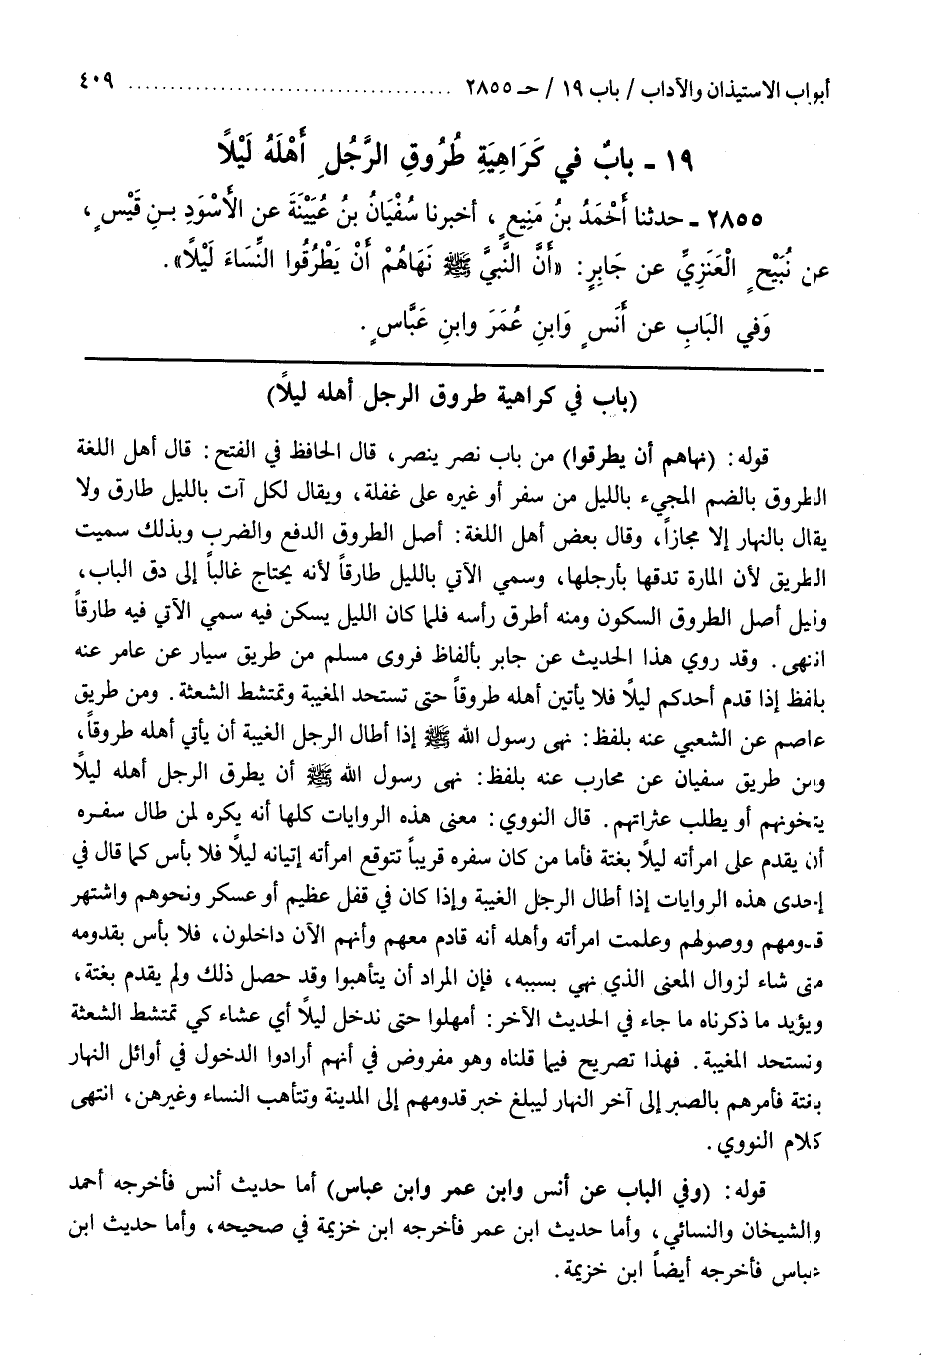 أبواب الاستيذان والآداب / باب ١٩ / حـ ٢٨٥٥ ........................................ ٤٠٩
١٩ - بابٌ في كَرَاهِيَةِ طُرُوقِ الرَّجُلِ أَهْلَهُ لَيْلًا
٢٨٥٥ - حدثنا أَحْمَدُ بنُ مَنِيعٍ، أخبرنا سُفْيَانُ بنُ عُيَيْنَةَ عن الأَسْوَدِ بـنِ قَيْسٍ،
عن نُبَيْحٍ الْعَنَزِيِّ عن جَابِرٍ: «أَنَّ النَّبيَّ ﷺ نَهَاهُمْ أَنْ يَطْرُقُوا النِّسَاءَ لَيْلًا».
وَفي البَابِ عن أَنَسٍ وَابنِ عُمَرَ وابنِ عَبَّاسٍ.
(باب في كراهية طروق الرجل أهله ليلًا)
قوله: (نهاهم أن يطرقوا) من باب نصر ينصر، قال الحافظ في الفتح: قال أهل اللغة
الطروق بالضم المجيء بالليل من سفر أو غيره على غفلة، ويقال لكل آت بالليل طارق ولا
يقال بالنهار إلا مجازاً، وقال بعض أهل اللغة: أصل الطروق الدفع والضرب وبذلك سميت
الطريق لأن المارة تدقها بأرجلها، وسمي الآتي بالليل طارقاً لأنه يحتاج غالباً إلى دق الباب،
وقيل أصل الطروق السكون ومنه أطرق رأسه فلما كان الليل يسكن فيه سمي الآتي فيه طارقاً
انتهى. وقد روي هذا الحديث عن جابر بألفاظ فروى مسلم من طريق سيار عن عامر عنه
بلفظ إذا قدم أحدكم ليلًا فلا يأتين أهله طروقاً حتى تستحد المغيبة وتمتشط الشعثة. ومن طريق
عاصم عن الشعبي عنه بلفظ: نهى رسول الله ﷺ إذا أطال الرجل الغيبة أن يأتي أهله طروقاً،
ومن طريق سفيان عن محارب عنه بلفظ: نهى رسول الله ﷺ أن يطرق الرجل أهله ليلًا
يتخونهم أو يطلب عثراتهم. قال النووي: معنى هذه الروايات كلها أنه يكره لمن طال سفـره
أن يقدم على امرأته ليلًا بغتة فأما من كان سفره قريباً تتوقع امرأته إتيانه ليلًا فلا بأس كما قال في
إحدى هذه الروايات إذا أطال الرجل الغيبة وإذا كان في قفل عظيم أو عسكر ونحوهم واشتهر
قدومهم ووصولهم وعلمت امرأته وأهله أنه قادم معهم وأنهم الآن داخلون، فلا بأس بقدومه
متى شاء لزوال المعنى الذي نهي بسببه، فإن المراد أن يتأهبوا وقد حصل ذلك ولم يقدم بغتة،
ويؤيد ما ذكرناه ما جاء في الحديث الآخر: أمهلوا حتى ندخل ليلًا أي عشاء كي تمتشط الشعثة
وتستحد المغيبة. فهذا تصريح فيما قلناه وهو مفروض في أنهم أرادوا الدخول في أوائل النهار
بغتة فأمرهم بالصبر إلى آخر النهار ليبلغ خبر قدومهم إلى المدينة وتتأهب النساء وغيرهن، انتهى
كلام النووي.
قوله: (وفي الباب عن أنس وابن عمر وابن عباس) أما حديث أنس فأخرجه أحمد
والشيخان والنسائي، وأما حديث ابن عمر فأخرجه ابن خزيمة في صحيحه، وأما حديث ابن
عباس فأخرجه أيضاً ابن خزيمة.